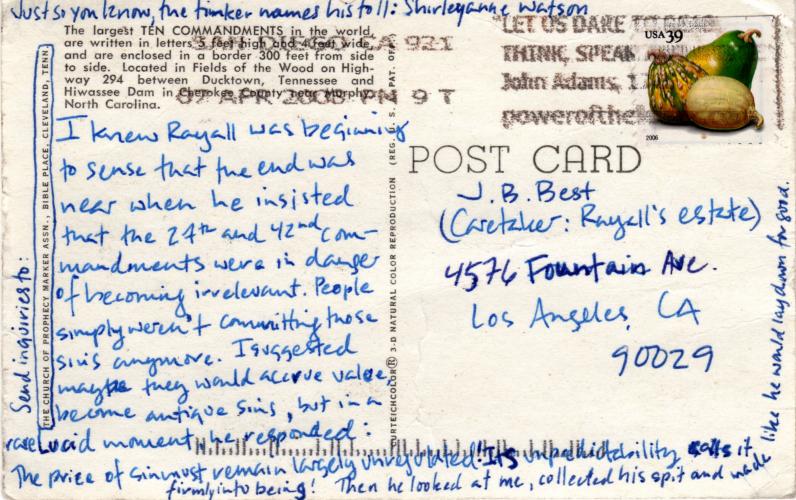 Just so you know, the tinker names his toll: Shirleyanne Watson
The largest TEN COMMANDMENTS in the world,
are written in letters 5 feet high and 4 feet wide
and are enclosed in a border 300 feet from side
to side. Located in Fields of the Wood on High-
way 294 between Ducktown, Tennessee and
Hiwassee Dam in Cherokee County near Murphy,
North Carolina.
CA 921
07 APR 2008 PM 9 T
"LET US DARE TO
THINK, SPEAK
John Adams, 1
powerofthe
USA 39
2006
I knew Rayall was beginning
to sense that the end was
near when he insisted
that the 24th and 42nd com-
mandments were in danger
of becoming irrelevant. People
simply weren't committing those
sins anymore. I suggested
maybe they would accrue value,
become antique sins, but in a
rare lucid moment he responded:
The price of sin must remain largely unregulated! Its unpredictability calls it
firmly into being! Then he looked at me, collected his spit and made
like he would lay down for good.
Send inquiries to:
THE CHURCH OF PROPHECY MARKER ASSN., BIBLE PLACE, CLEVELAND, TENN.
CURTEICHCOLOR® 3-D NATURAL COLOR REPRODUCTION (REG. U. S. PAT. OFF.)
POST CARD
J.B. Best
(Caretaker: Rayall's estate)
4576 Fountain Ave.
Los Angeles, CA
90029